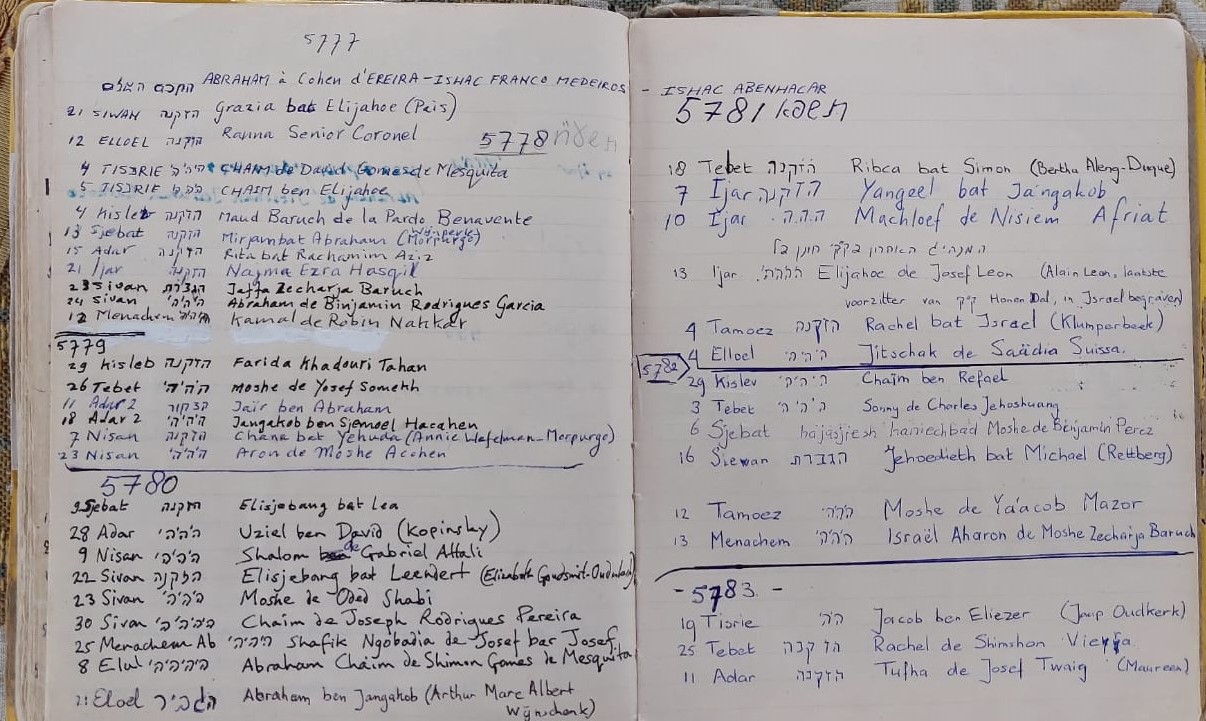 5777
החכם השלם ABRAHAM à Cohen d'EREIRA - ISHAC FRANCO MEDEIROS
21 SIWAN הזקנה Grazia bat Elijahoe (Pais)
12 ELLOEL הזקנה Ranna Senior Coronel
5778
4 TISJRIE CHAIM de David Gomes de Mesquita
5 TISJRIE CHAIM ben Elijahoe
4 Kisleb הזקנה Maud Baruch de la Pardo Benavente
13 Sjebat הזקנה Mirjam bat Abraham (Morpurgo)
15 Adar הזקנה Rita bat Rachamim Aziz
21 Ijar הזקנה Najma Ezra Hasqil
23 Sivan הגברת Jaffa Zecharja Baruch
24 Sivan הי'ה'ה' Abraham de Binjamin Rodrigues Garcia
12 Menachem Kamal de Robin Nakkar
5779
29 Kisleb הזקנה Farida Khadouri Tahan
26 Tebet הי'ה'ה' Moshe de Yosef Somekh
11 Adar 2 Jaïr ben Abraham
18 Adar 2 הי'ה'ה' Jangakob ben Sjemoel Hacahen
7 Nisan הזקנה Chana bat Yehuda (Annie Wafelman-Morpurgo)
23 Nisan הי'ה'ה' Aron de Moshe Acohen
5780
Sjebat הזקנה Elisjebang bat Lea
28 Adar הי'ה'ה' Uziel ben David (Kopinsky)
9 Nisan הי'ה'ה' Shalom de Gabriel Attali
22 Sivan הזקנה Elisjebang bat Leendert (Elizabeth Goudsmit-Oudkerk)
23 Sivan הי'ה'ה' Moshe de Oded Shabi
30 Sivan הי'ה'ה'ה' Chaim de Joseph Rodrigues Pereira
25 Menachem Ab הי'ה'ה' Shafik Ngobadia de Josef bar Josef
8 Elul הי'ה'ה'ה' Abraham Chaim de Shimon Gomes de Mesquita
21 Eloel הגביר Abraham ben Jangakob (Arthur Marc Albert
Wijnschenk)
- ISHAC ABENHACAR
5781 תשפא
18 Tebet הזקנה Ribca bat Simon (Bertha Aleng-Duque)
7 Ijar הזקנה Yangeel bat Ja'ngakob
10 Ijar ה.ה.ה. Machloef de Nisiem Afriat
המנהיג האחרון בקק חונן דל
13 Ijar Elijahoe de Josef Leon (Alain Leon, laatste
voorzitter van ק"ק Honen Dal, in Israel begraven)
4 Tamoez הזקנה Rachel bat Israel (Klumperbeek)
4 Elloel הי'ה'ה' Jitschak de Saädia Suissa.
5782
29 Kislev הי'ה'ה' Chaïm ben Refael
3 Tebet ה'ה'ה' Sonny de Charles Jehoshuang
6 Sjebat hajasjiesh haniechbad Moshe de Benjamin Perez
16 Siewan הגברת Jehoedieth bat Michael (Rettberg)
12 Tamoez הי'ה'ה' Moshe de Ya'acob Mazor
13 Menachem הי'ה'ה' Israël Aharon de Moshe Zecharja Baruch
- 5783. -
19 Tisrie הה' Jacob ben Eliezer (Jaap Oudkerk)
25 Tebet הזקנה Rachel de Shimshon Vieyra
11 Adar הזקנה Tufha de Josef Twaig (Maureen)